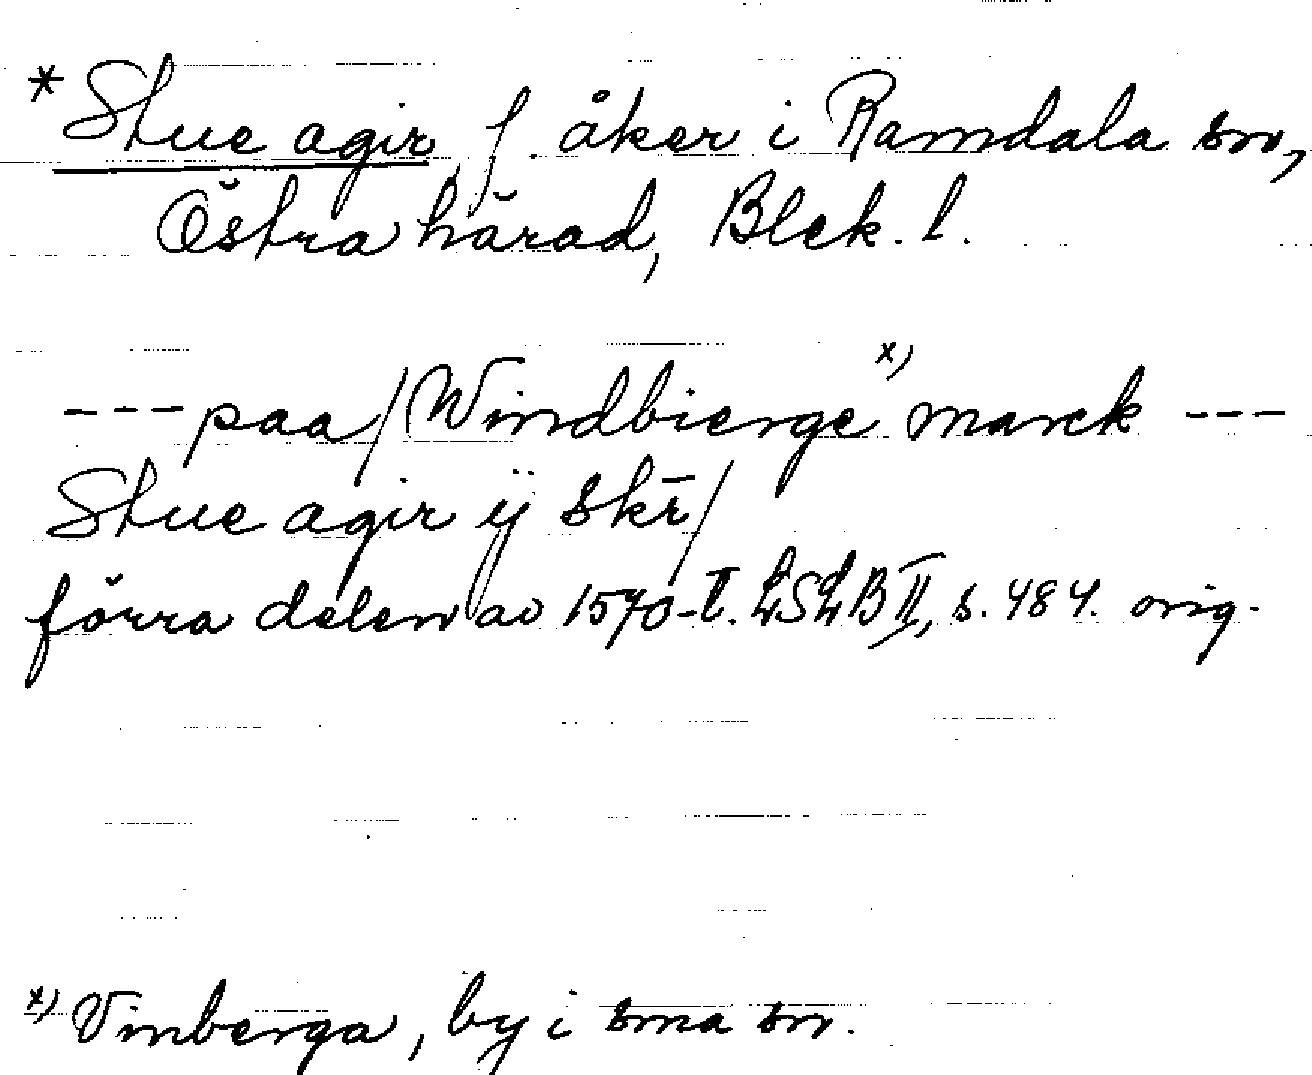 * Stue agir, f. åker i Ramdala sn,
Östra härad, Blek. l.
--- paa / Windbierge x) marck ---
Stue agir ij skr̄ /
förra delen av 1570-t. LSLB II, s. 484. orig.
x) Vinberga, by i sma sn.